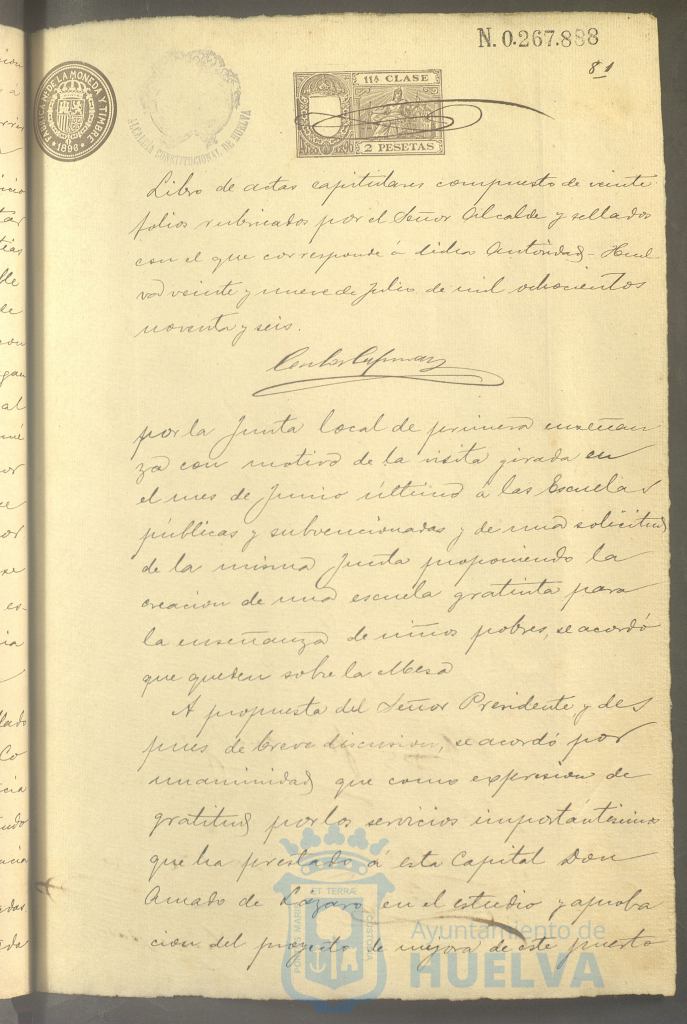 N. 0.267.888
81
FÁBRICA NL. DE LA MONEDA Y TIMBRE
1896
ALCALDIA CONSTITUCIONAL DE HUELVA
11ª CLASE
2 PESETAS
Libro de actas capitulares compuesto de veinte
folios rubricados por el Señor Alcalde y sellados
con el que corresponde á dicha Autoridad - Huel
va veinte y nueve de Julio de mil ochocientos
noventa y seis.
por la Junta local de primera enseñan
za con motivo de la visita girada en
el mes de Junio último á las Escuelas
públicas y subvencionadas y de una solicitud
de la misma Junta proponiendo la
creacion de una escuela gratuita para
la enseñanza de niños pobres, se acordó
que queden sobre la Mesa
A propuesta del Señor Presidente y des
pues de breve discusion, se acordó por
unanimidad que como expresion de
gratitud por los servicios importantísimos
que ha prestado á esta Capital Don
Amado de Lázaro en el estudio y aproba
cion del proyecto de mejora de este puerto
PORTUS MARIS ET TERRÆ CUSTODIA
Ayuntamiento de
HUELVA